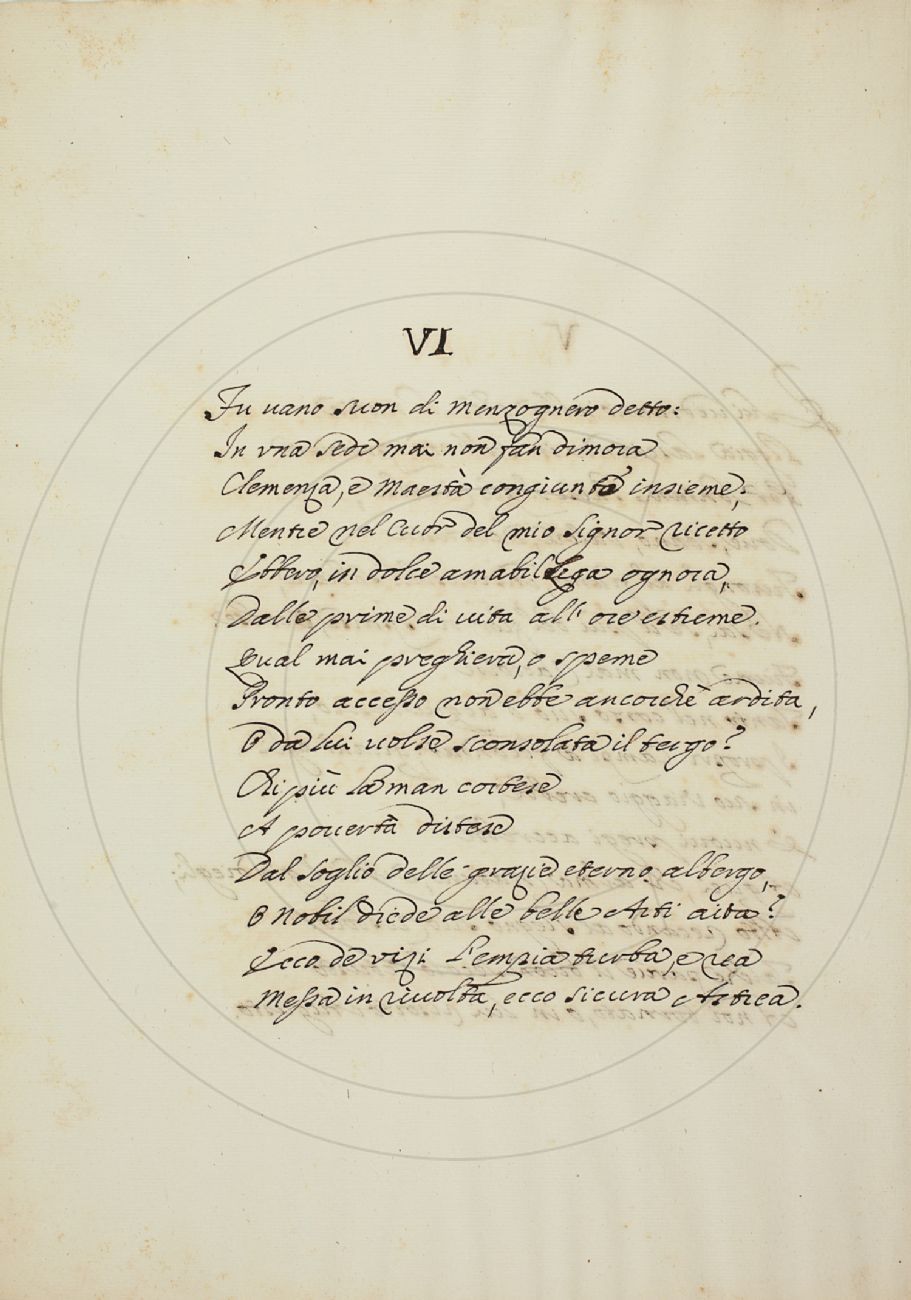 VI
Fu vano suon di menzognero detto:
In vna sede mai non fan dimora
Clemenza, e Maestà congiunte insieme;
Mentre nel Cuor del mio Signor ricetto
Ebbero, in dolce amabil Lega ognora,
Dalle prime di vita all' ore estreme.
Qual mai preghiera, o speme
Pronto accesso non ebbe ancorchè ardita,
O da lui volse sconsolata il tergo?
Chi più la man cortese
A povertà distese
Dal soglio delle grazie eterno albergo,
O nobil diede alle belle Arti aita?
Ecco de vizi l'empia turba, e rea
Messa in rivolta, ecco sicura Astrea.